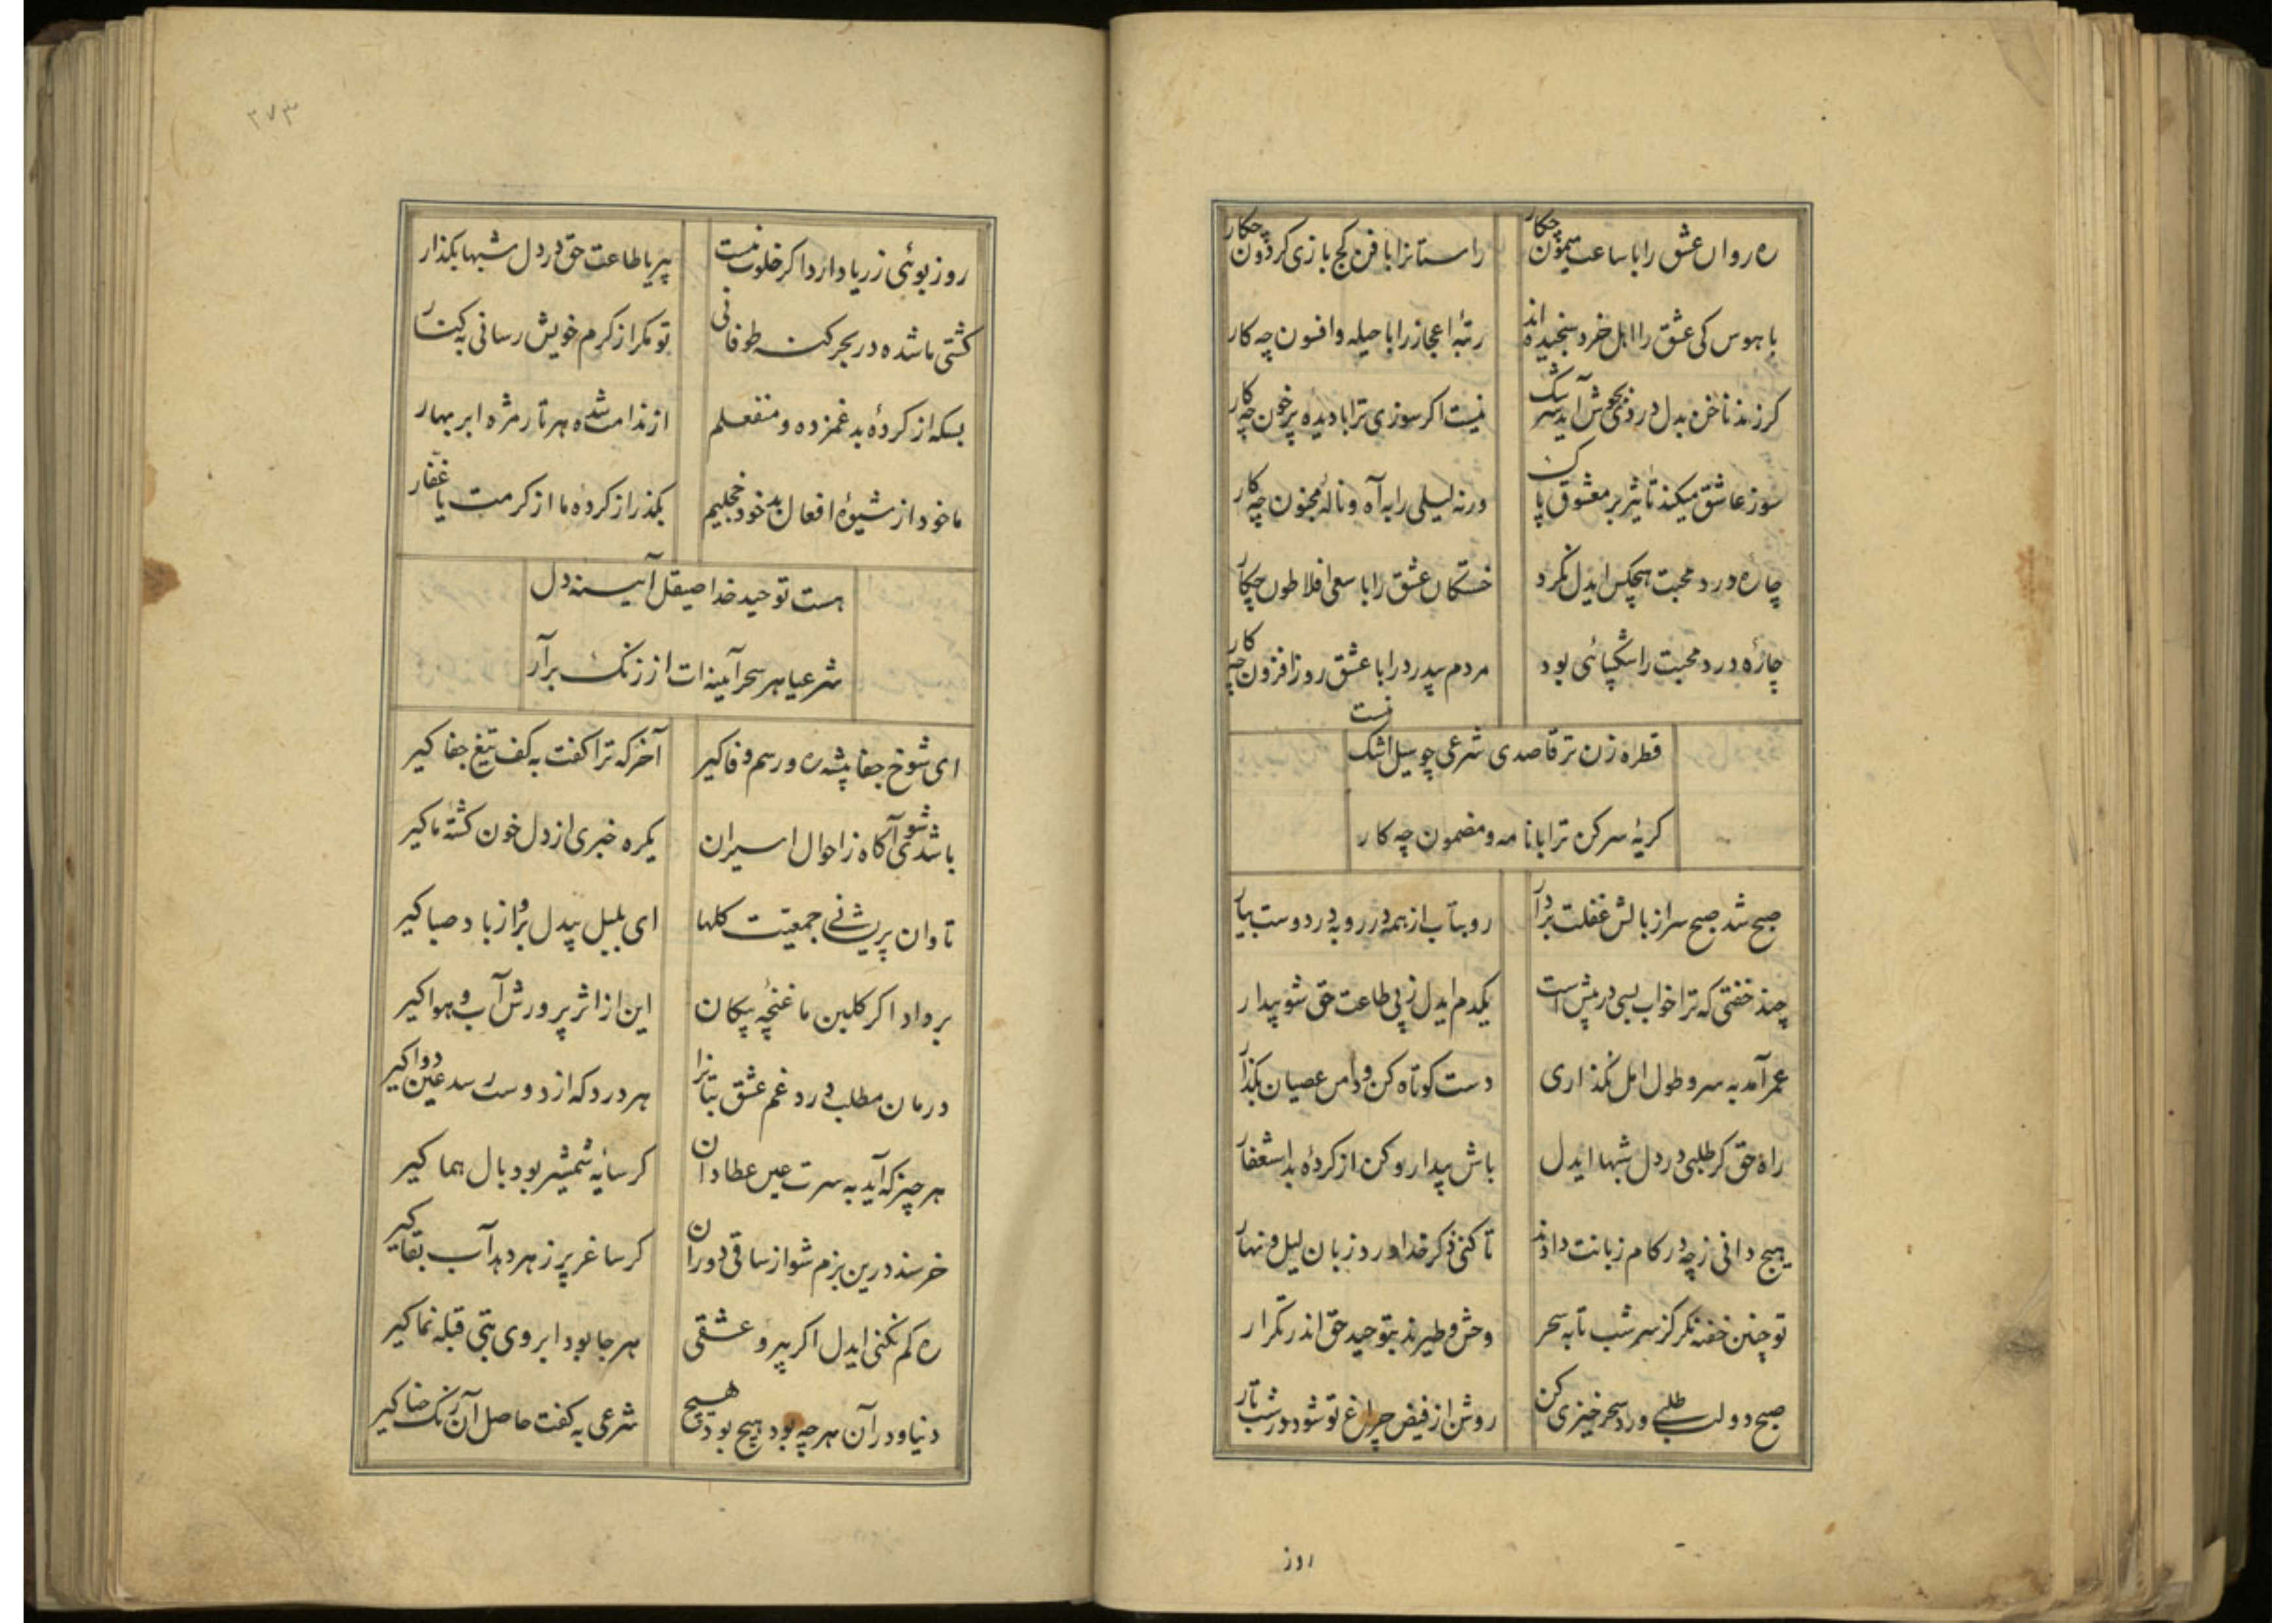 ره روان عشق را با ساعت میمون چکار راستانرا با فن کج بازی کردون چکار
با هوس کی عشق را اهل خرد سنجیده اند رتبهٔ اعجاز را با حیله و افسون چه کار
کر زند ناخن بدل دردی بجوش آید سرشک نیست اکر سوزی ترا با دیده پر خون چه کار
سوز عاشق میکند تاثیر بر معشوق پاک ورنه لیلی را به آه و نالهٔ مجنون چه کار
چاره درد محبت هیچکس ایدل نکرد خستکان عشق را با سعی افلاطون چکار
چارهٔ درد محبت را شکیبائی بود مردم بیدرد را با عشق روز افزون چه کار
قطره زن تر قاصدی شرعی چو سیل اشک نیست
کریهٔ سر کن ترا با نامه و مضمون چه کار
صبح شد صبح سر از بالش غفلت بردار رو بتاب از همه در رو به در دوست بیار
چند خفتی که ترا خواب بسی در پیش است یکدم ایدل ز پی طاعت حق شو بیدار
عمر آمد به سر و طول امل نکذاری دست کوتاه کن و دامن عصیان بکذار
راه حق کر طلبی در دل شبها ایدل باش بیدار و کن از کردهٔ بد استغفار
هیچ دانی ز چه در کام زبانت دادند تا کنی ذکر خدا ورد زبان لیل و نهار
تو چنین خفته نکر کز سر شب تا به سحر وحش و طیرند بتوحید حق اندر تکرار
صبح دولت طلبی ورد سحر خیزی کن روشن از فیض چراغ تو شود در شب تار
روز
۳۷۳
روز بوئی ز ریا دارد اکر خلوت نیست بیریا طاعت حق در دل شبها بکذار
کشتی ما شده در بحر کنه طوفانی تو مکر از کرم خویش رسانی به کنار
بسکه از کردهٔ بد غمزده و منفعلم از ندامت شده هر تار مژه ابر بهار
ما خود از شیوهٔ افعال بد خود خجلیم بکذر از کردهٔ ما از کرمت یا غفّار
هست توحید خدا صیقل آیینه دل
شرعیا هر سحر آینه ات از زنک برآر
ای شوخ جفا پیشه ره و رسم وفا کیر آخر که ترا کفت به کف تیغ جفا کیر
باشد شوی آکاه ز احوال اسیران یکره خبری از دل خون کشتهٔ ما کیر
تاوان پریشانی جمعیت کلها ای بلبل بیدل برو از باد صبا کیر
بر داد اکر کلبن ما غنچهٔ پیکان این از اثر پرورش آب و هوا کیر
درمان مطلب درد غم عشق بتانرا هر درد که از دوست رسد عین دوا کیر
هر چیز که آید به سرت عین عطا دان کر سایهٔ شمشیر بود بال هما کیر
خرسند درین بزم شو از ساقی دوران کر ساغر پر زهر دهد آب بقا کیر
ره کم نکنی ایدل اکر پیرو عشقی هر جا بود ابروی بتی قبله نما کیر
دنیا و در آن هر چه بود هیچ بود هیچ شرعی به کفت حاصل آن رنک حنا کیر